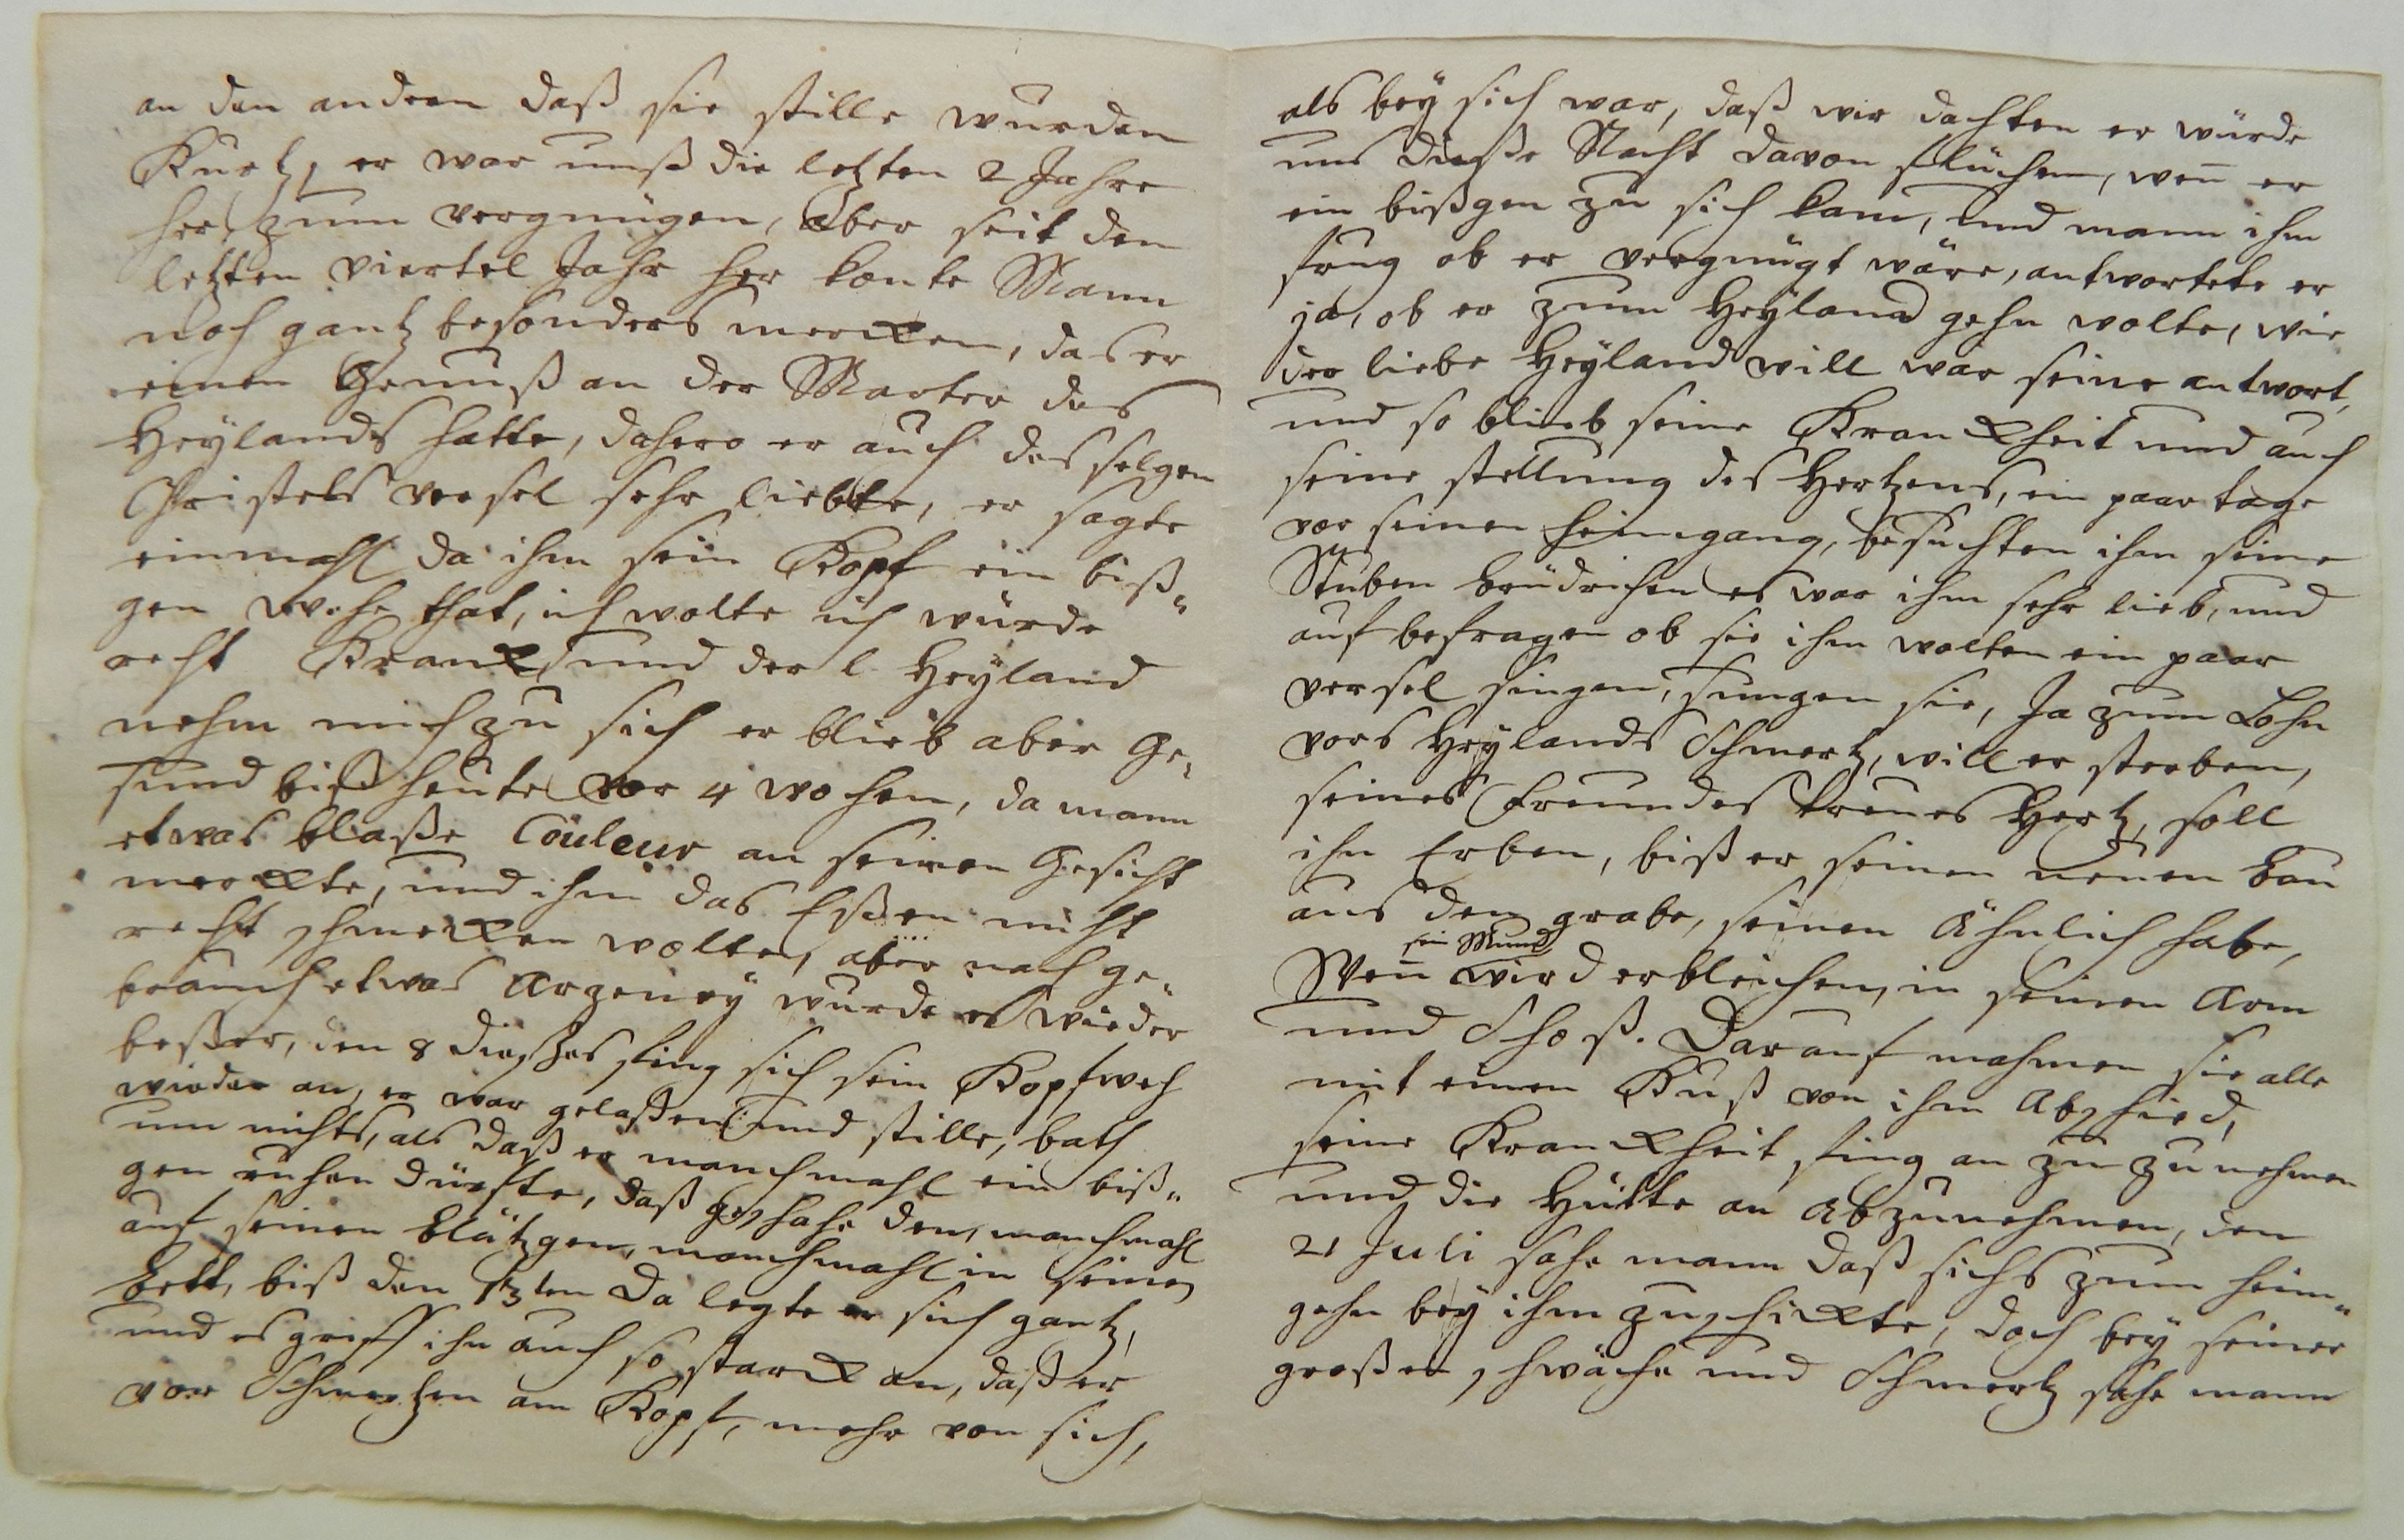 an den andern daß sie stille wurden
Kurtz, er war unß die letzten 2 Jahre
her zum vergnügen, Aber seit den
letzten viertel Jahr her konte Mann
noch gantz besonders mercken, das er
einen Genuß an der Marter des
Heylands hatte, dahero er auch des selgen
Christels versel sehr liebte, er sagte
einmahl da ihm sein Kopf ein biß„
gen wehe that, ich wolte ich würde
recht Kranck und der l. Heyland
nehm mich zu sich er blieb aber Ge„
sund biß heute vor 4 wochen, da mann
etwas blaße Couleur an seinen Gesicht
merckte, und ihm das Eßen nicht
recht schmecken wolte, aber nach ge„
brauch etwas Arzeney wurde es wieder
beßer, den 8 dießes fing sich sein Kopfweh
wieder an, er war gelaßen und stille, bath
um nichts, als daß er manchmahl ein biß„
gen ruhen dürfte, daß geschahe den, manchmahl
auf seinen Plätzgen, manchmahl in seinen
bett, biß den 13ten da legte er sich gantz,
und es griff ihn auch so starck an, daß er
vor Schmertzen am Kopf, mehr von sich,
als bey sich war, daß wir dachten er würde
uns dieße Nacht davon flüchen, wen̅ er
ein bißgen zu sich kam, und mann ihm
frug ob er vergnügt wäre, antwortete er
ja, ob er zum Heyland gehn wolte, wie
der liebe Heyland will war seine antwort,
und so blieb seine Kranckheit und auch
seine stellung des Hertzens, ein paar tage
vor seinen heimgang, besuchten ihm seine
Stuben brüdrichen es war ihm sehr lieb, und
auf befragen ob sie ihm wolten ein paar
versel singen, sungen sie, Ja zum Lohn
vors Heylands Schmertz, will er sterben,
seines Freundes treues Hertz, soll
ihn Erben, biß er seinen neuen bau
aus dem grabe, seinen Ähnlich habe,
Wen̅ sein Mund wird erbleichen, in seinen Arm
und Schoß. Darauf nahmen sie alle
mit einen Kuß von ihm Abschied,
seine Kranckheit fing an zu zu nehmen
und die Hütte an Abzunehmen, den
21 Juli sahe mann daß sichs zum heim„
gehn bey ihm zuschickte, doch bey seiner
großen schwäche und Schmertz sahe mann